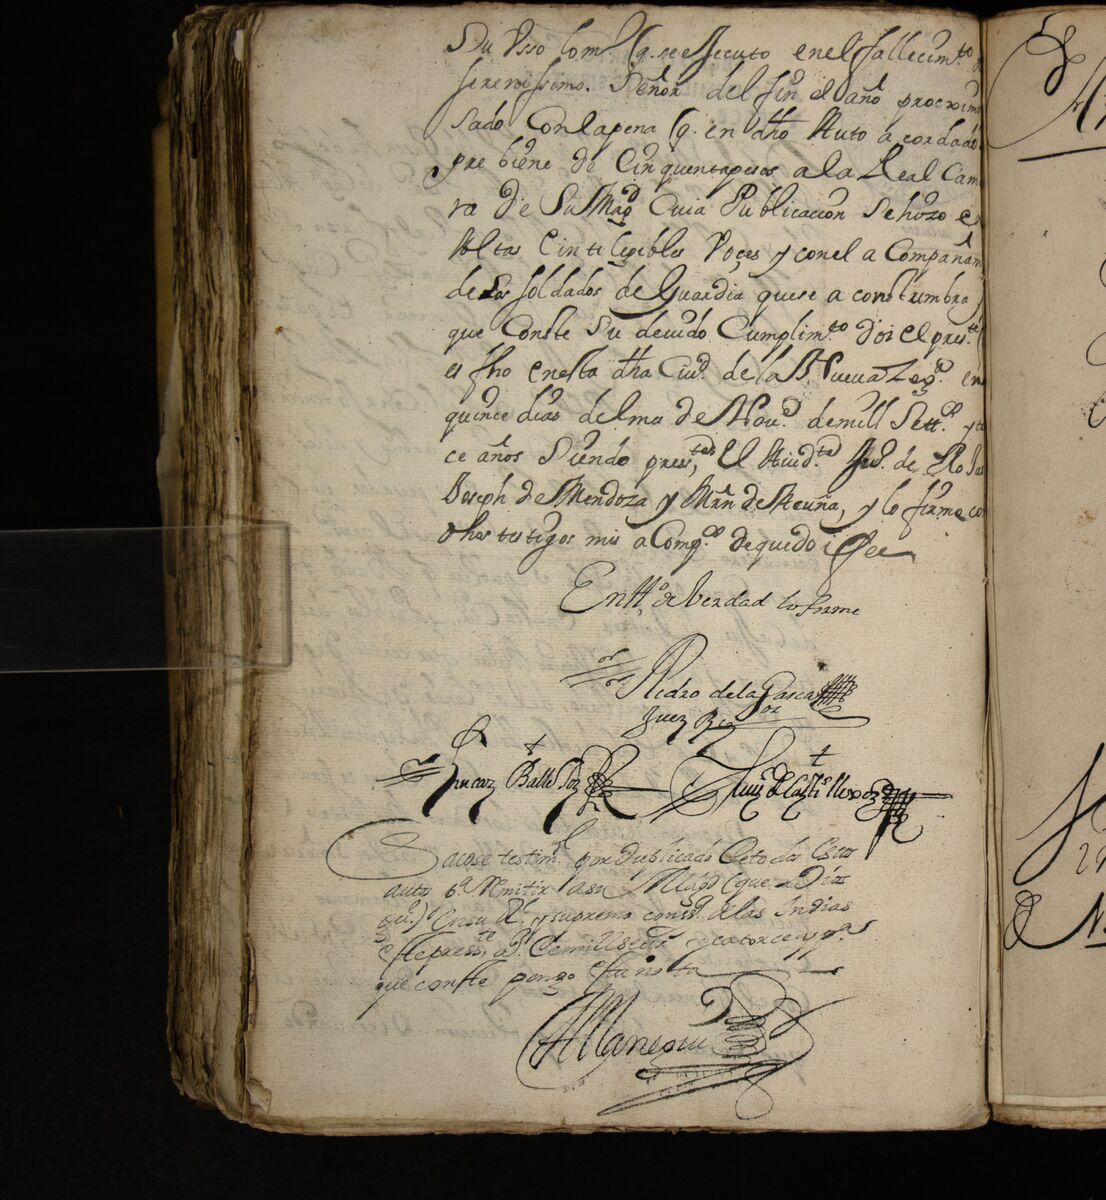 Su Usso Com.o (q. se essecuto en el fallecim.to
Serenissimo. Señor Delfin el año proxim
sado Con la pena (q. en dho Auto acordado
pre biene de Cinquenta pesos a la Real Cam
ra de Su Mag.d Cuia Publicacion Se hizo e
Altas e intilegibles Voçes y con el a Compañam
de los soldados de Guardia que se a constumbra y
que Conste Su devido Cumplim.to doi el pres.te
es fho en esta dha Ciu.d de la Nueva Zeg.a en
quince dias del mes de Nov.e de mill Sett.os y tr
ce años Siendo press.tes, El Aiud.te Ju.o de Roxas
Joseph de Mendoza y Mrn de Acuña, y lo firme co
dhos testigos mis a Comp.os de quedo i fee
En tt.o de Verdad lo firme
Pedro de la Gasca
Juez Rez.or
Lucaz Balle Joz
Luis de Castill
Sacose testim.o por duplicado de to dos Estos
autos p.a Remitir a su Mag.d (que Dios
gu.e) en su R.l y supremo cons.o de las Indias
este press.te a.o de mill sett.s y catorce y p.a
que conste pongo esta nota